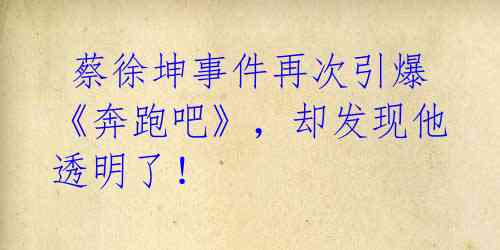 蔡徐坤事件再次引爆
《奔跑吧》，却发现他
透明了！